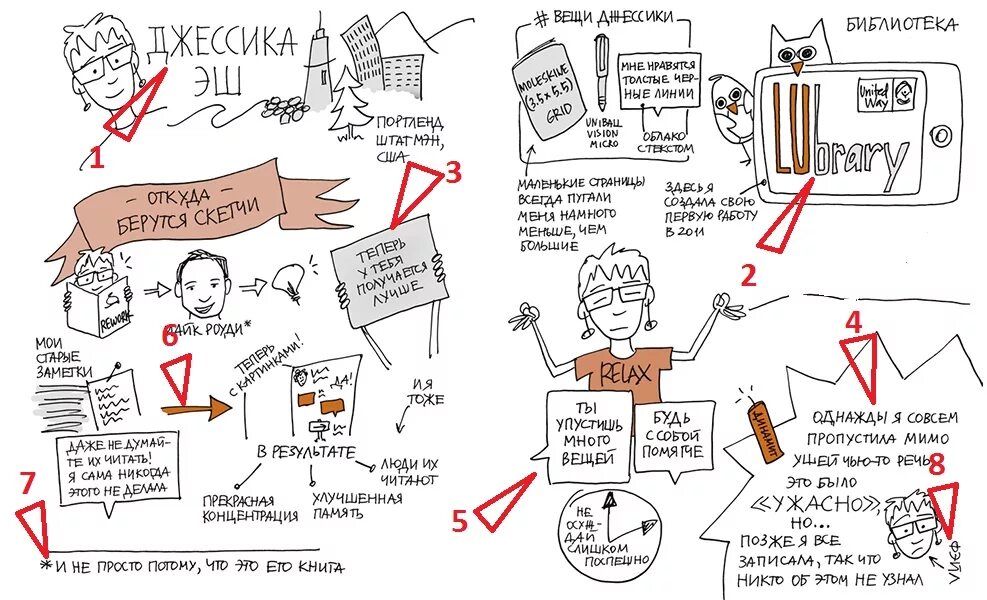 ДЖЕССИКА
ЭШ
1
ПОРТЛЕНД
ШТАТ МЭН,
США
# ВЕЩИ ДЖЕССИКИ
MOLESKINE
(3.5 x 5.5)
GRID
UNIBALL
VISION
MICRO
МНЕ НРАВЯТСЯ
ТОЛСТЫЕ ЧЕР-
НЫЕ ЛИНИИ
ОБЛАКО
С ТЕКСТОМ
МАЛЕНЬКИЕ СТРАНИЦЫ
ВСЕГДА ПУГАЛИ
МЕНЯ НАМНОГО
МЕНЬШЕ, ЧЕМ
БОЛЬШИЕ
БИБЛИОТЕКА
United
Way
LUbrary
ЗДЕСЬ Я
СОЗДАЛА СВОЮ
ПЕРВУЮ РАБОТУ
В 2011
2
3
- ОТКУДА -
БЕРУТСЯ СКЕТЧИ
REWORK
МАЙК РОУДИ*
ТЕПЕРЬ
У ТЕБЯ
ПОЛУЧАЕТСЯ
ЛУЧШЕ
6
МОИ
СТАРЫЕ
ЗАМЕТКИ
ТЕПЕРЬ
С КАРТИНКАМИ!
ДА!
И Я
ТОЖЕ
ДАЖЕ НЕ ДУМАЙ-
ТЕ ИХ ЧИТАТЬ!
Я САМА НИКОГДА
ЭТОГО НЕ ДЕЛАЛА
В РЕЗУЛЬТАТЕ
ПРЕКРАСНАЯ
КОНЦЕНТРАЦИЯ
УЛУЧШЕННАЯ
ПАМЯТЬ
ЛЮДИ ИХ
ЧИТАЮТ
7
*И НЕ ПРОСТО ПОТОМУ, ЧТО ЭТО ЕГО КНИГА
RELAX
ТЫ
УПУСТИШЬ
МНОГО
ВЕЩЕЙ
БУДЬ
С СОБОЙ
ПОМЯГЧЕ
5
НЕ
ОСУЖ-
ДАЙ
СЛИШКОМ
ПОСПЕШНО
4
ДИНАМИТ
ОДНАЖДЫ Я СОВСЕМ
ПРОПУСТИЛА МИМО
УШЕЙ ЧЬЮ-ТО РЕЧЬ
ЭТО БЫЛО
«УЖАСНО»
НО...
ПОЗЖЕ Я ВСЕ
ЗАПИСАЛА, ТАК ЧТО
НИКТО ОБ ЭТОМ НЕ УЗНАЛ
8